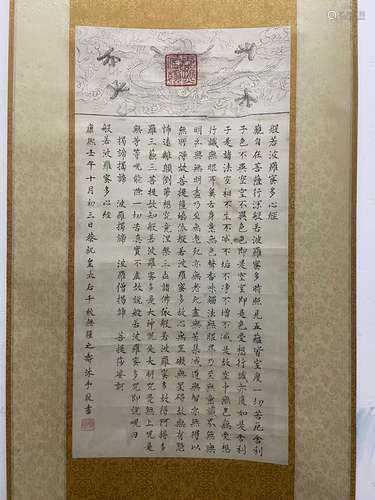 般若波羅蜜多心經
觀自在菩薩行深般若波羅蜜多時照見五蘊皆空度一切苦厄舍利
子色不異空空不異色色即是空空即是色受想行識亦復如是舍利
子是諸法空相不生不滅不垢不淨不增不減是故空中無色無受想
行識無眼耳鼻舌身意無色聲香味觸法無眼界乃至無意識界無無
明亦無無明盡乃至無老死亦無老死盡無苦集滅道無智亦無得以
無所得故菩提薩埵依般若波羅蜜多故心無罣礙無罣礙故無有恐
怖遠離顛倒夢想究竟涅槃三世諸佛依般若波羅蜜多故得阿耨多
羅三藐三菩提故知般若波羅蜜多是大神咒是大明咒是無上咒是
無等等咒能除一切苦真實不虛故說般若波羅蜜多咒即說咒曰
揭諦揭諦 波羅揭諦 波羅僧揭諦 菩提薩婆訶
般若波羅蜜多心經
康熙壬午十月初三日恭祝皇太后千秋無疆之壽沐手敬書